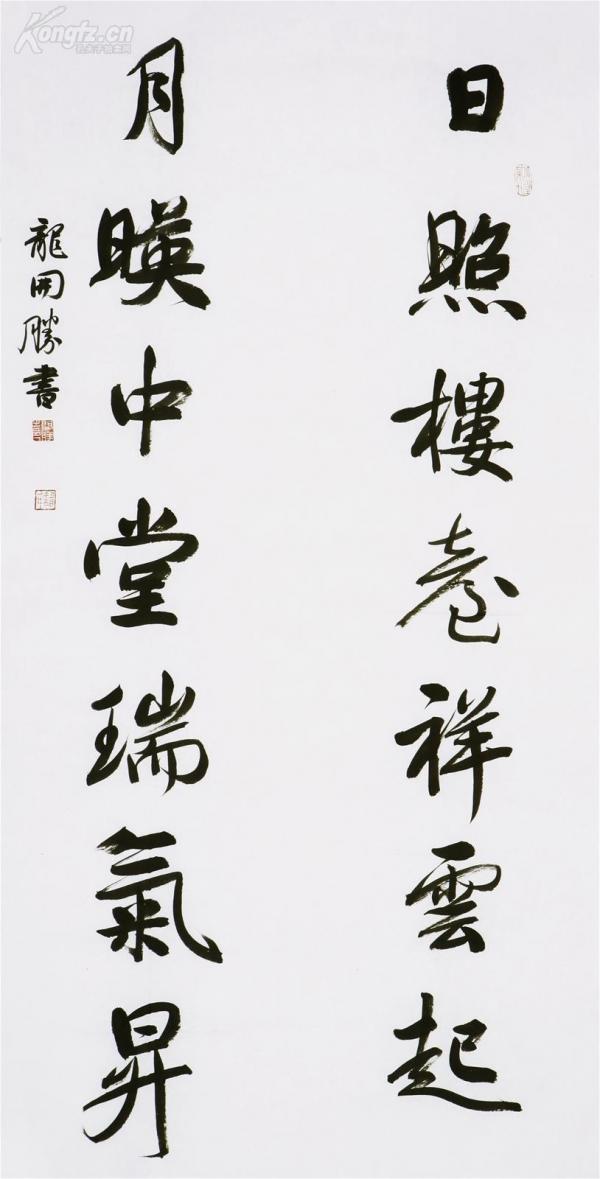 日照樓臺祥雲起
月暎中堂瑞氣昇
龍開勝書
Kongfz.cn
孔夫子拍卖网